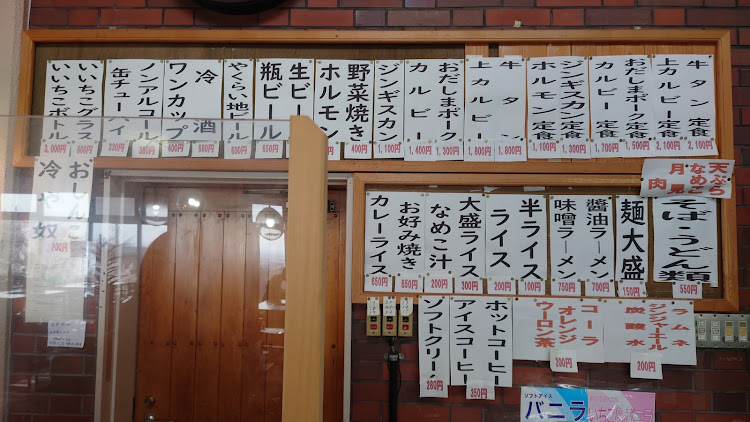 牛タン定食
2,100円
上カルビー定食
2,100円
おだしまポーク定食
1,500円
カルビー定食
1,700円
ジンギスカン定食
ホルモン定食
1,100円
牛タン
1,800円
上カルビー
1,800円
おだしまポーク
1,300円
カルビー
1,400円
ジンギスカン
1,100円
野菜焼き
400円
ホルモン
生ビー
瓶ビール
650円
やくらい地ビール
冷酒
ワンカップ
400円
ノンアルコール
缶チューハイ
いいちこグラス
600円
いいちこボトル
3,000円
おしんこ
冷や奴
200円
天ぷら
なめこ
月見
肉
そば・うどん類
550円
麺大盛
150円
醤油ラーメン
700円
味噌ラーメン
750円
半ライス
100円
ライス
200円
大盛ライス
300円
なめこ汁
200円
お好み焼き
650円
カレーライス
650円
ラムネ
ジンジャエール
炭酸水
200円
コーラ
オレンジ
ウーロン茶
200円
ホットコーヒー
アイスコーヒー
350円
ソフトクリーム
280円
ソフトアイス
バニラ